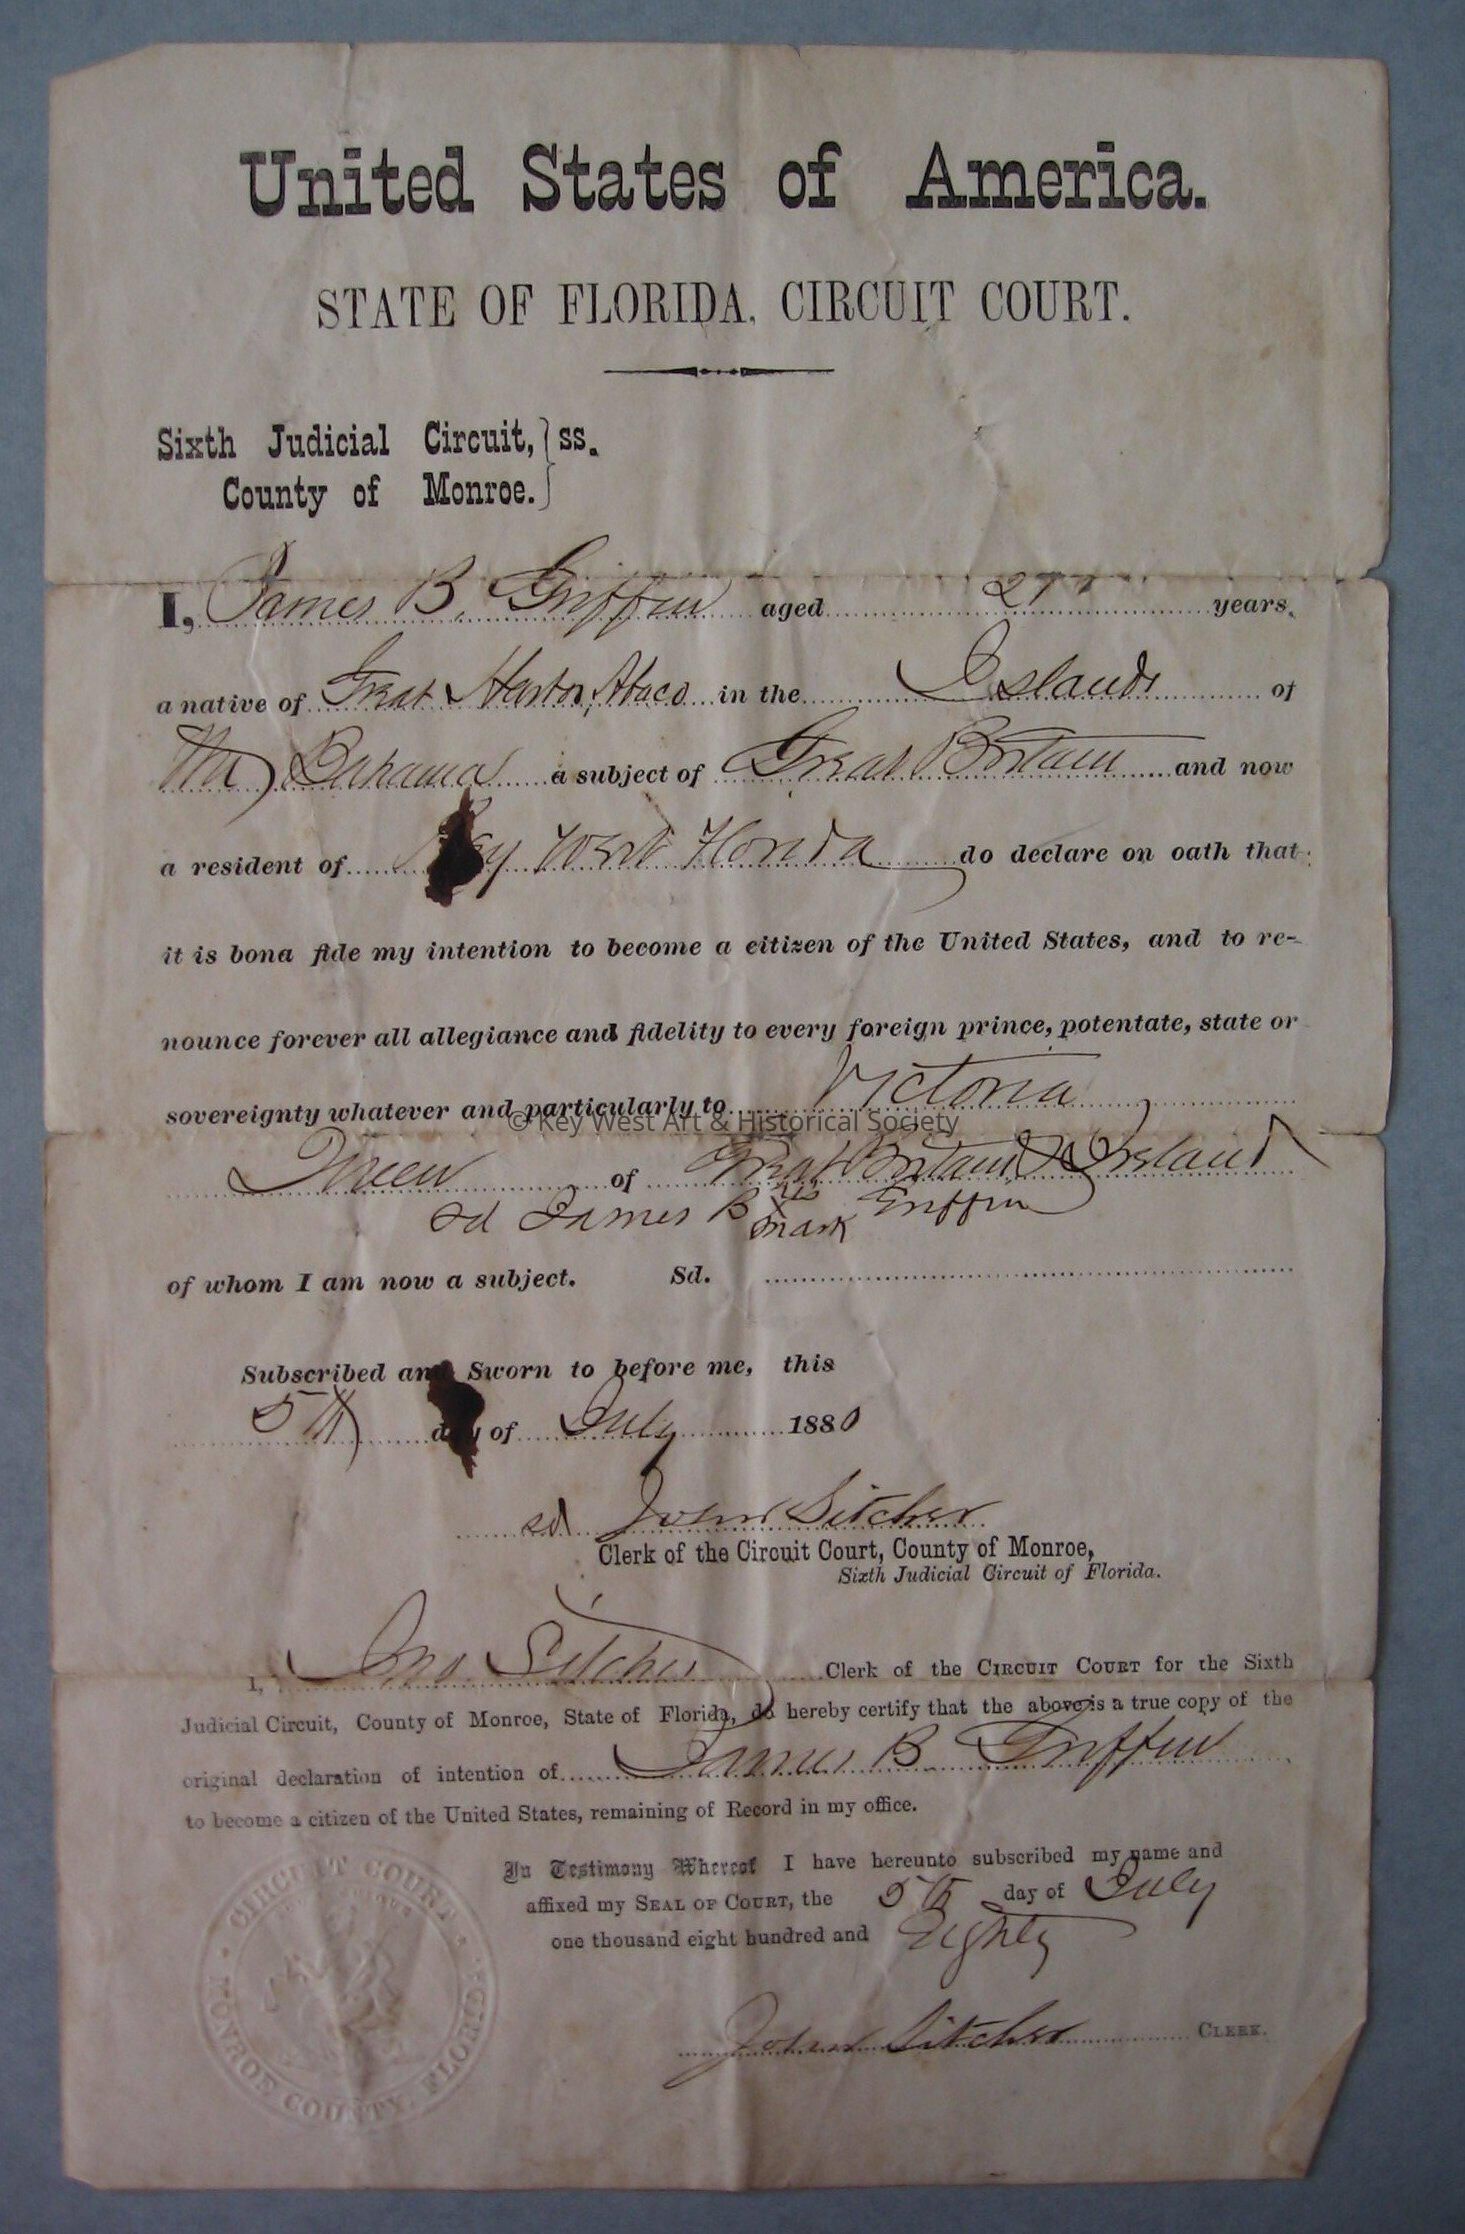 United States of America.
STATE OF FLORIDA, CIRCUIT COURT.
Sixth Judicial Circuit, } ss.
County of Monroe. }
I, James B. Griffin aged 27 years,
a native of Great Harbor, Abaco in the Islands of
the Bahama a subject of Great Britain and now
a resident of Key West Florida do declare on oath that
it is bona fide my intention to become a citizen of the United States, and to re-
nounce forever all allegiance and fidelity to every foreign prince, potentate, state or
sovereignty whatever and particularly to Victoria
© Key West Art & Historical Society
Queen of Great Britain & Ireland
sd James B his x mark Griffin
of whom I am now a subject. Sd.
Subscribed and Sworn to before me, this
5th day of July 1880
sd John Sitcher
Clerk of the Circuit Court, County of Monroe,
Sixth Judicial Circuit of Florida.
I, Jno Sitcher Clerk of the CIRCUIT COURT for the Sixth
Judicial Circuit, County of Monroe, State of Florida, do hereby certify that the above is a true copy of the
original declaration of intention of James B Griffin
to become a citizen of the United States, remaining of Record in my office.
In Testimony Whereof I have hereunto subscribed my name and
affixed my SEAL OF COURT, the 5th day of July
one thousand eight hundred and Eighty
John Sitcher CLERK.
CIRCUIT COURT
MONROE COUNTY, FLORIDA